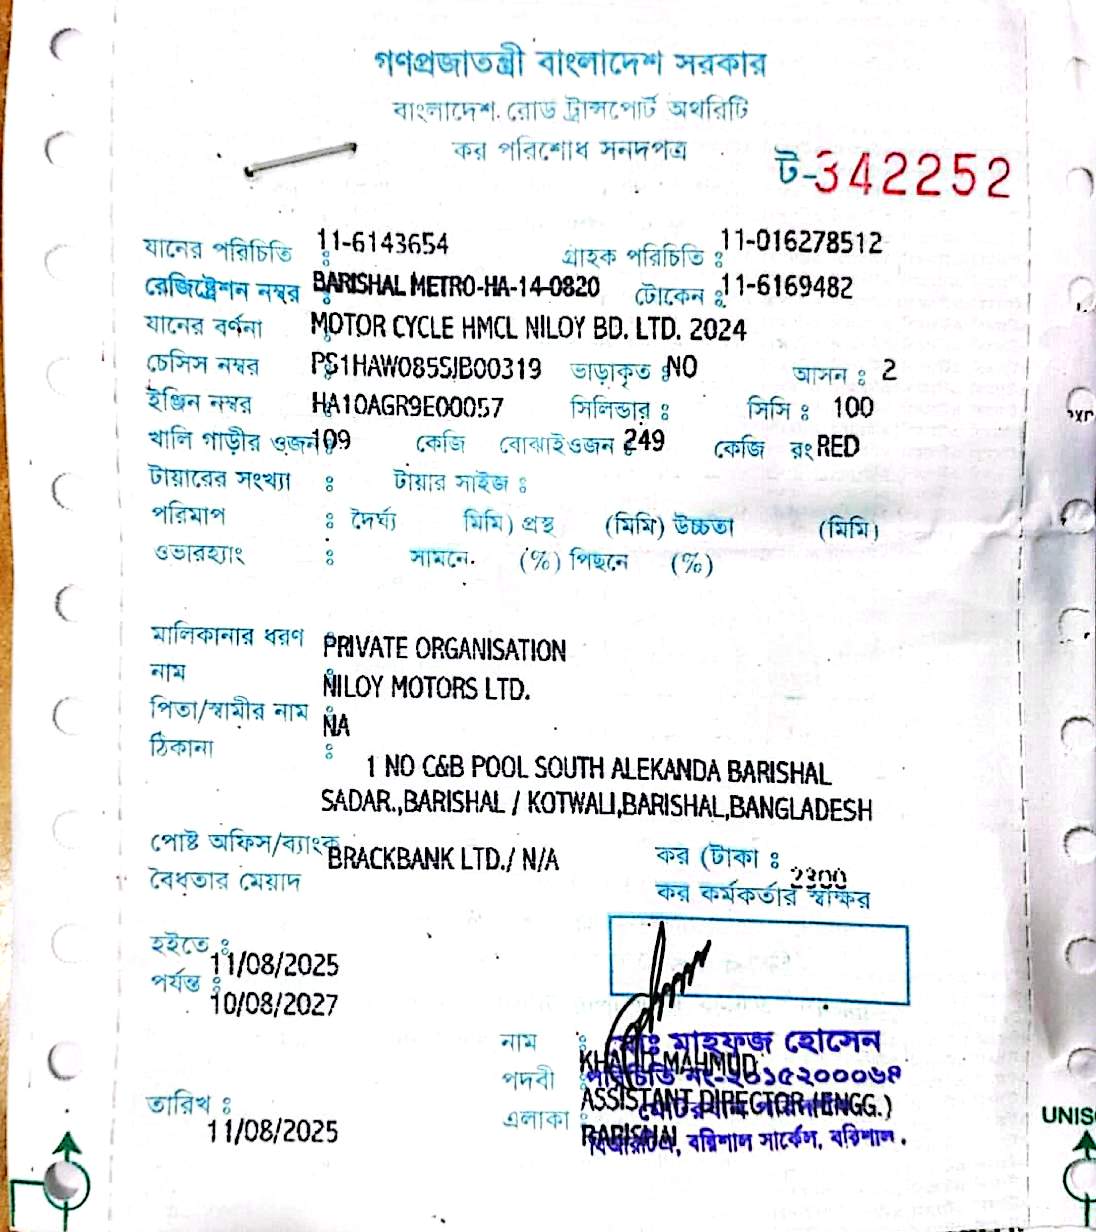 গণপ্রজাতন্ত্রী বাংলাদেশ সরকার
বাংলাদেশ রোড ট্রান্সপোর্ট অথরিটি
কর পরিশোধ সনদপত্র
ট-342252
যানের পরিচিতি : 11-6143654 গ্রাহক পরিচিতি : 11-016278512
রেজিষ্ট্রেশন নম্বর : BARISHAL METRO-HA-14-0820 টোকেন : 11-6169482
যানের বর্ণনা : MOTOR CYCLE HMCL NILOY BD. LTD. 2024
চেসিস নম্বর : PS1HAW085SJB00319 ভাড়াকৃত : NO আসন : 2
ইঞ্জিন নম্বর : HA10AGR9E00057 সিলিন্ডার : সিসি : 100
খালি গাড়ীর ওজন : 109 কেজি বোঝাই ওজন : 249 কেজি রং RED
টায়ারের সংখ্যা : টায়ার সাইজ :
পরিমাপ : দৈর্ঘ্য মিমি) প্রস্থ (মিমি) উচ্চতা (মিমি)
ওভারহ্যাং : সামনে (%) পিছনে (%)
মালিকানার ধরণ : PRIVATE ORGANISATION
নাম : NILOY MOTORS LTD.
পিতা/স্বামীর নাম : NA
ঠিকানা :
1 NO C&B POOL SOUTH ALEKANDA BARISHAL
SADAR.,BARISHAL / KOTWALI,BARISHAL,BANGLADESH
পোষ্ট অফিস/ব্যাংক BRACKBANK LTD./ N/A কর (টাকা : 2300
বৈধতার মেয়াদ কর কর্মকর্তার স্বাক্ষর
হইতে : 11/08/2025
পর্যন্ত : 10/08/2027
নাম : মোঃ মাহফুজ হোসেন
KHALID MAHMUD
পদবী : পরিচিতি নং-২০১৫২০০০৬৪
ASSISTANT DIRECTOR (ENGG.)
এলাকা : BARISHAL
বিআরটিএ, বরিশাল সার্কেল, বরিশাল.
তারিখ : 11/08/2025
UNIS